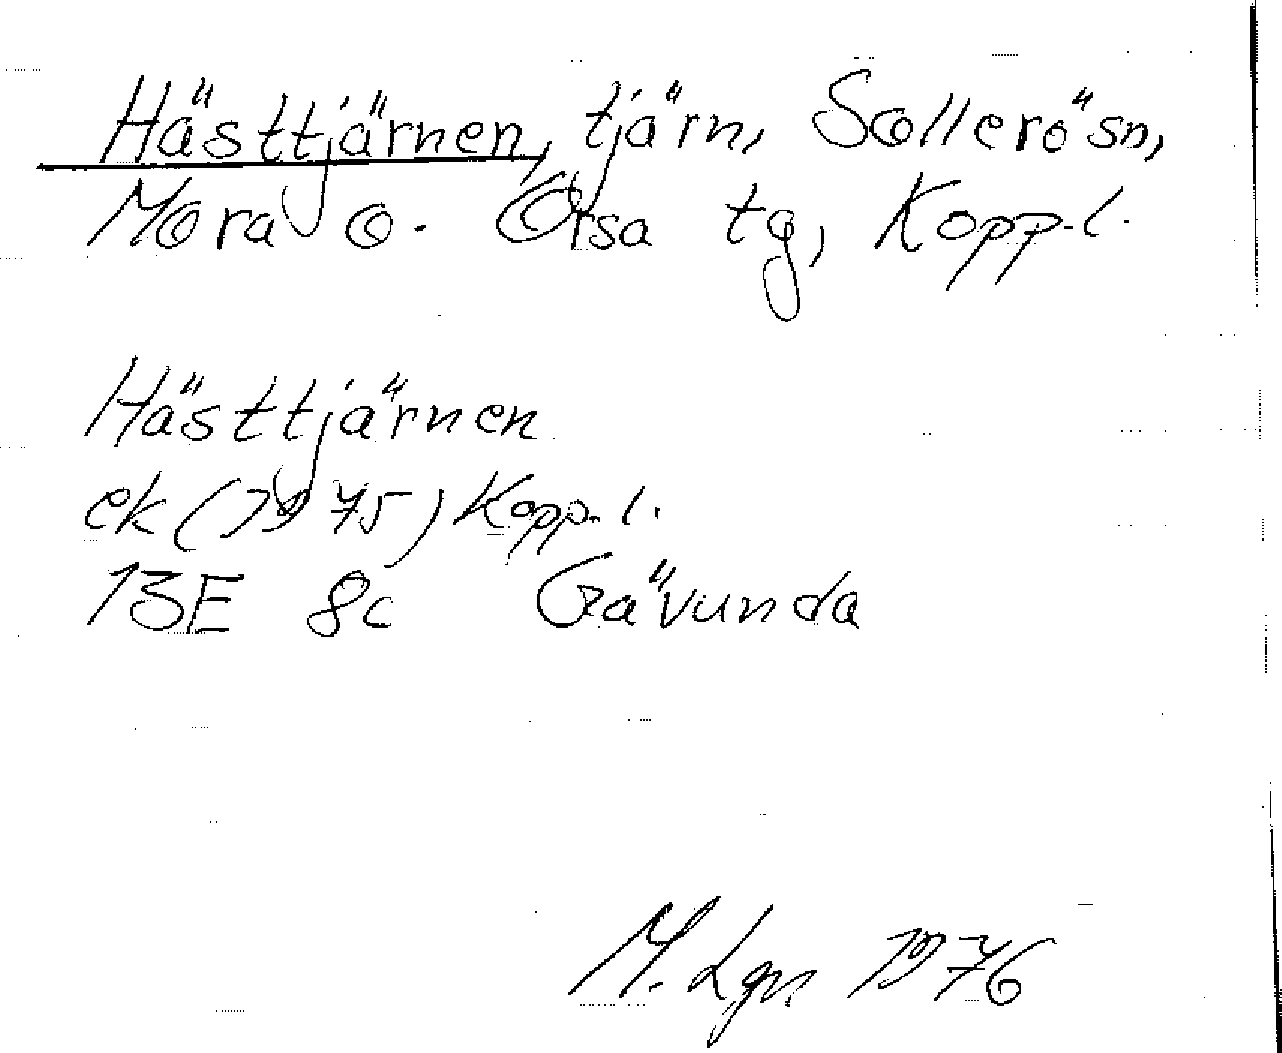 Hästtjärnen, tjärn, Sollerö sn,
Mora o. Orsa tg, Kopp.l.
Hästtjärnen
ek (1975) Kopp. l.
13E 8c Gävunda
M. Lgn 1976